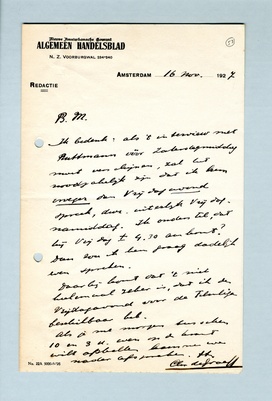 Nieuwe Amsterdamsche Courant
ALGEMEEN HANDELSBLAD
N. Z. VOORBURGWAL
REDACTIE
AMSTERDAM 16 Nov. 1927
B. M.
Ik bedenk: als 't interview met
vóór Zaterdagmiddag
moet verschijnen, zal het
noodzakelijk zijn dat ik hem
vroeger dan Vrijdagavond
spreek, dus uiterlijk Vrijdag-
namiddag. Ik onderstel, dat
hij Vrijdag ± 4.30 aankomt?
Dan zou ik hem graag dadelijk
even spreken.
Daarbij komt dat 't niet
helemaal zeker is, dat ik de
Vrijdagavond voor de
beschikbaar heb.
Als je me morgen tusschen
10 en 3 u. even
wilt opbellen, kunnen we
nader afspreken. t.t.